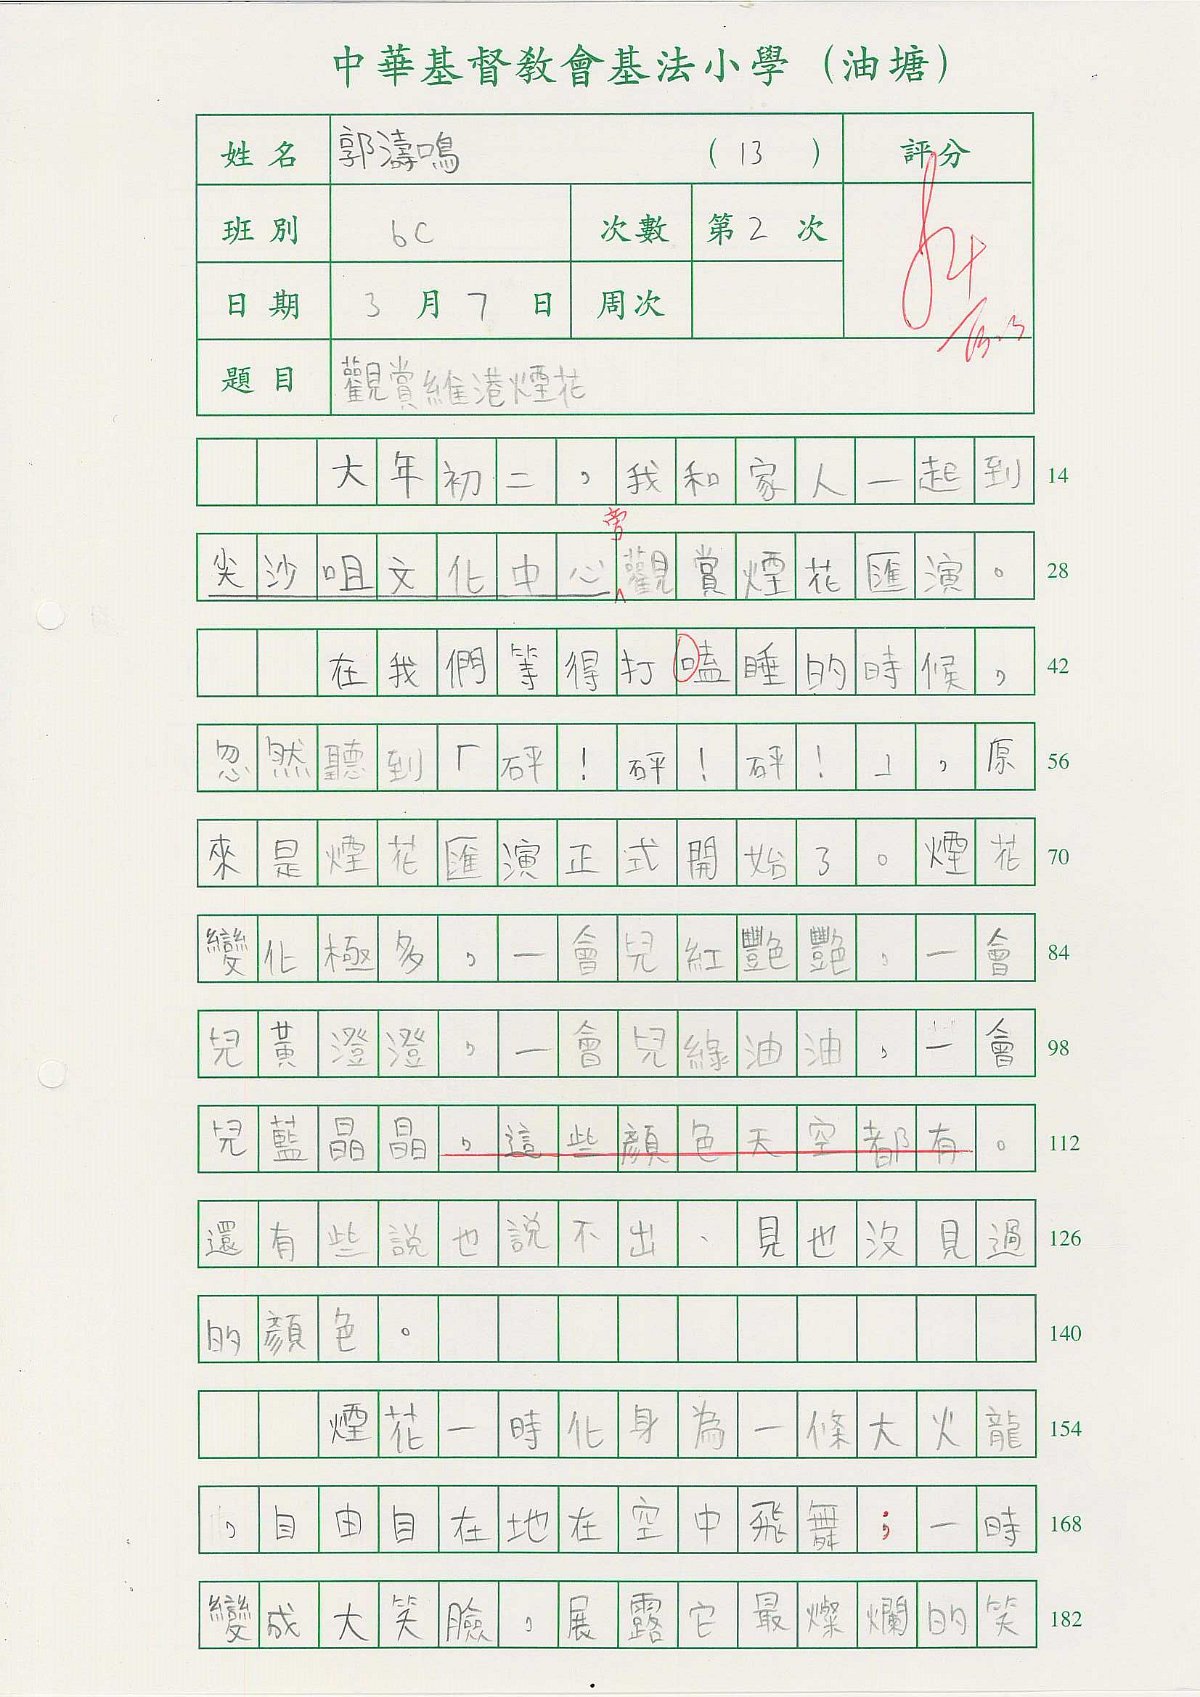 中華基督教會基法小學（油塘）
姓名 郭濤鳴 （13） 評分
班別 6C 次數 第2次
日期 3月7日 周次
題目 觀賞維港煙花
大年初二，我和家人一起到 14
旁
尖沙咀文化中心觀賞煙花匯演。 28
在我們等得打嗑睡的時候， 42
忽然聽到「砰！砰！砰！」，原 56
來是煙花匯演正式開始了。煙花 70
變化極多，一會兒紅艷艷，一會 84
兒黃澄澄，一會兒綠油油，一會 98
兒藍晶晶，這些顏色天空都有。 112
還有些說也說不出、見也沒見過 126
的顏色。 140
煙花一時化身為一條大火龍 154
，自由自在地在空中飛舞；一時 168
變成大笑臉，展露它最燦爛的笑 182